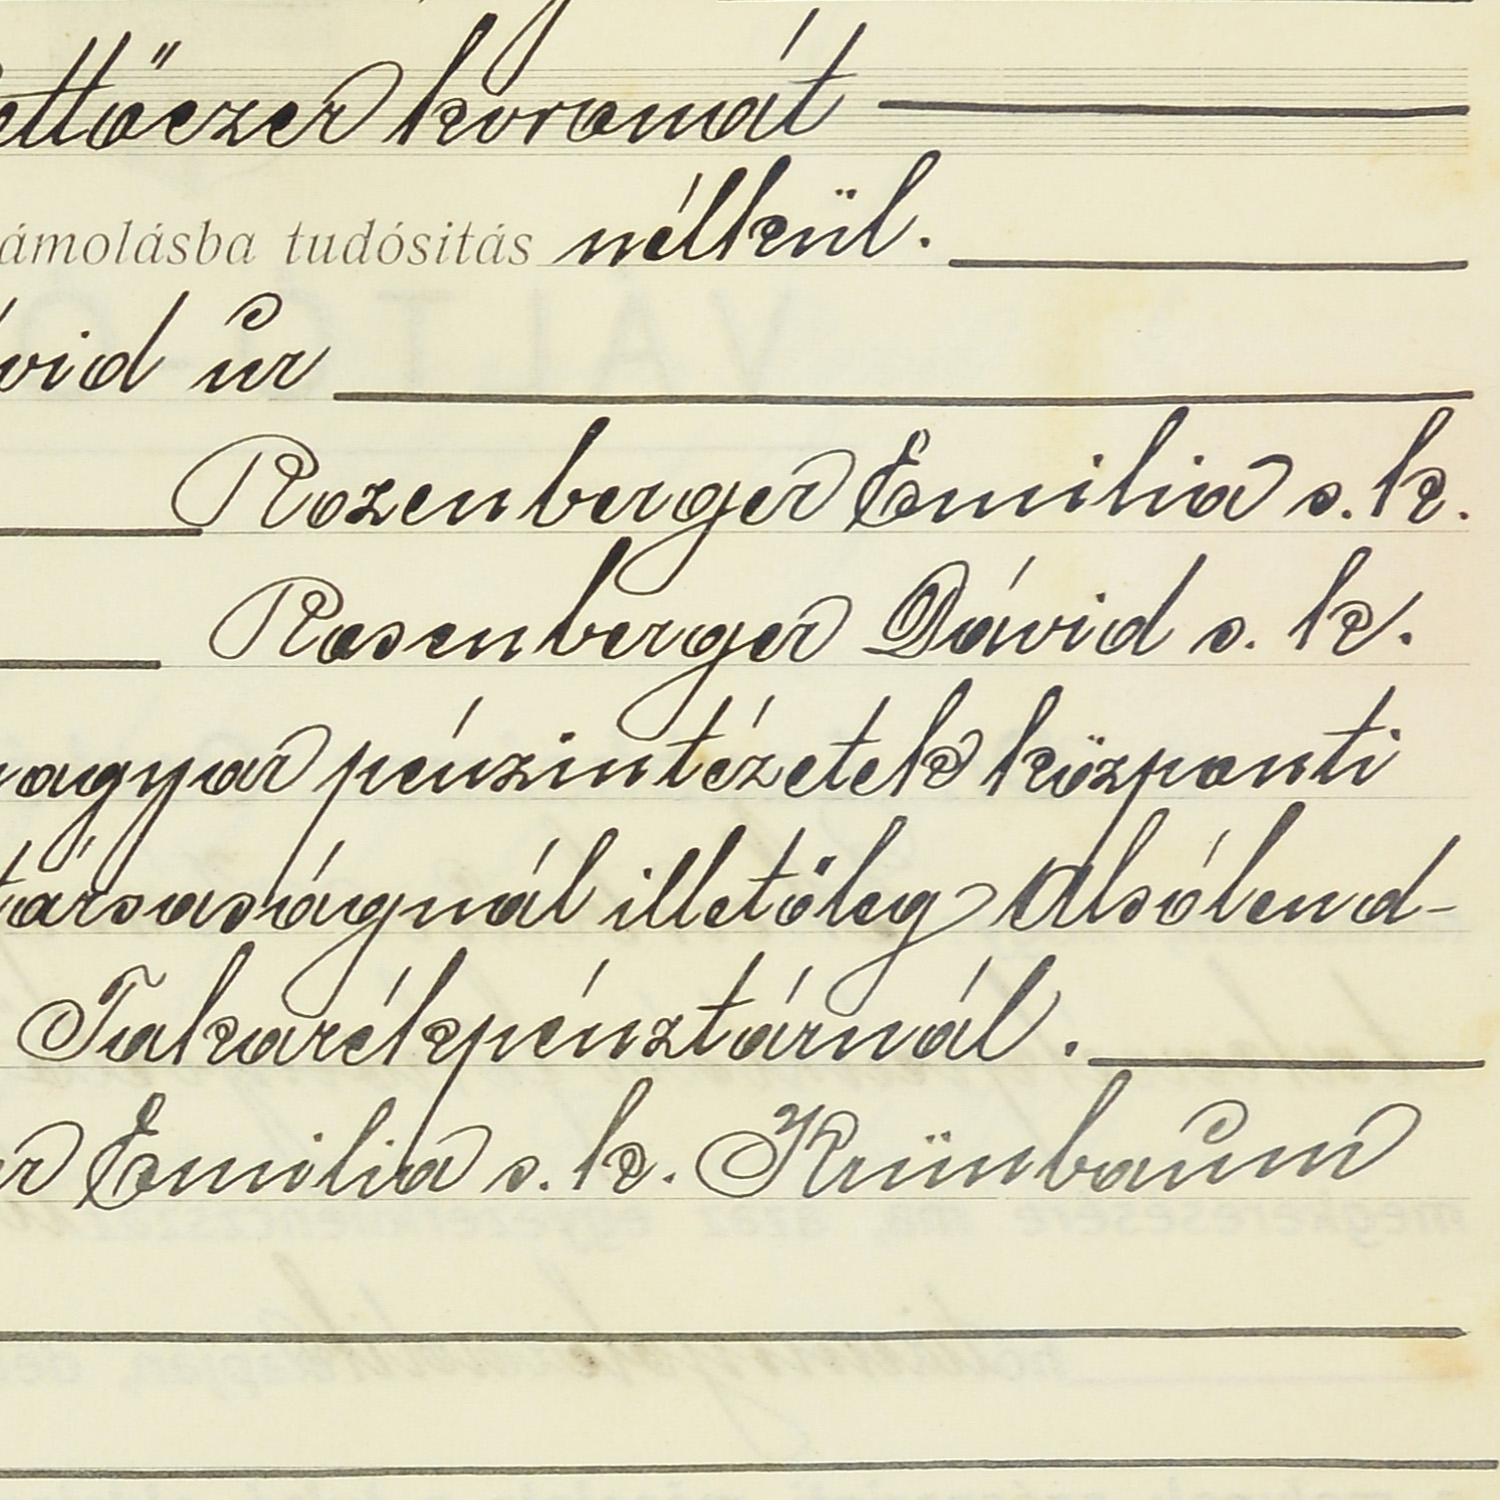 ettőezer koronát
ámolásba tudósitás nélkül.
vid űr
Rozenberger Emilia s. k.
Rosenberger Dávid s. k.
agyar pénzintézetek központi
társaságnál illetőleg Alsólend-
Takarékpénztárnál.
er Emilia s. k. Krünbaum